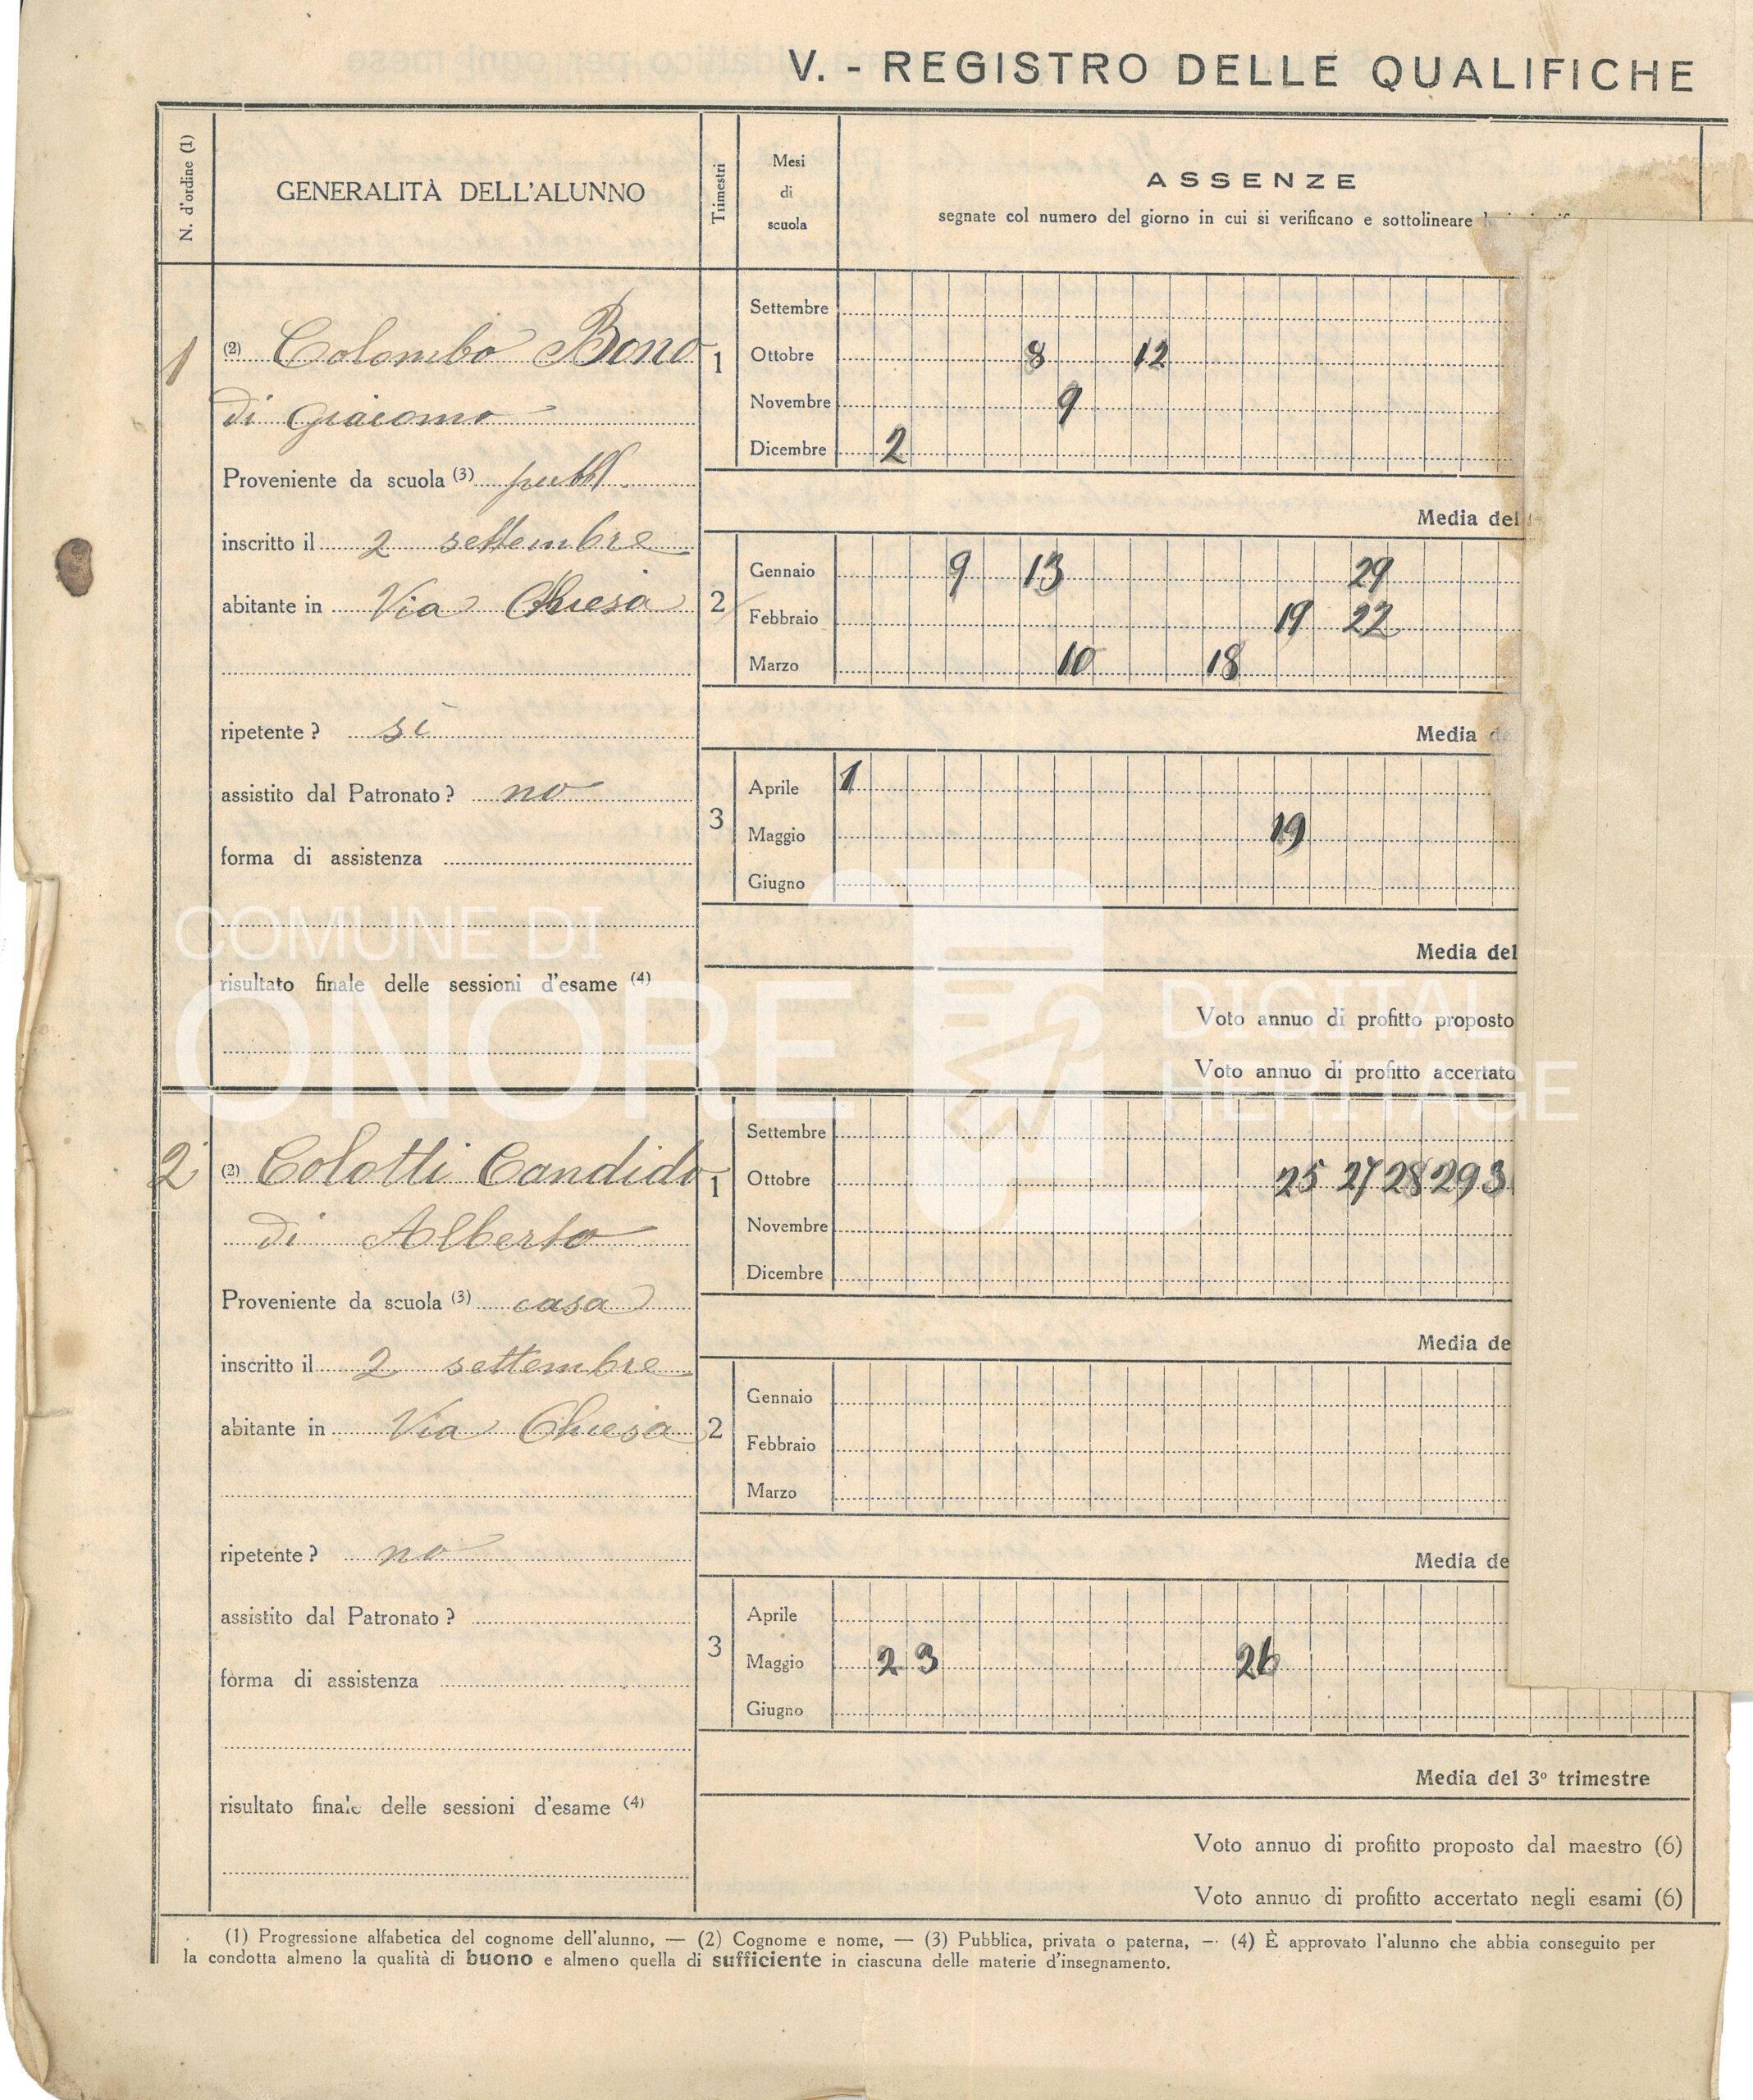 V. - REGISTRO DELLE QUALIFICHE
N. d'ordine (1)
GENERALITÀ DELL'ALUNNO
Trimestri
Mesi
di
scuola
ASSENZE
segnate col numero del giorno in cui si verificano e sottolineare
1
(2) Colombo Bono
di Giacomo
Proveniente da scuola (3) pubbl.
inscritto il 2 settembre
abitante in Via Chiesa
ripetente? si
assistito dal Patronato? no
forma di assistenza
risultato finale delle sessioni d'esame (4)
1
Settembre
Ottobre 8 12
Novembre 9
Dicembre 2
Media del
2
Gennaio 9 13 29
Febbraio 19 22
Marzo 10 18
Media
3
Aprile 1
Maggio 19
Giugno
Media del
Voto annuo di profitto proposto
Voto annuo di profitto accertato
COMUNE DI
ONORE
DIGITAL
HERITAGE
2
(2) Colotti Candido
di Alberto
Proveniente da scuola (3) casa
inscritto il 2 settembre
abitante in Via Chiesa
ripetente? no
assistito dal Patronato?
forma di assistenza
risultato finale delle sessioni d'esame (4)
1
Settembre
Ottobre 25 27 28 29 3
Novembre
Dicembre
Media de
2
Gennaio
Febbraio
Marzo
Media de
3
Aprile
Maggio 2 3 26
Giugno
Media del 3º trimestre
Voto annuo di profitto proposto dal maestro (6)
Voto annuo di profitto accertato negli esami (6)
(1) Progressione alfabetica del cognome dell'alunno, — (2) Cognome e nome, — (3) Pubblica, privata o paterna, — (4) È approvato l'alunno che abbia conseguito per
la condotta almeno la qualità di buono e almeno quella di sufficiente in ciascuna delle materie d'insegnamento.